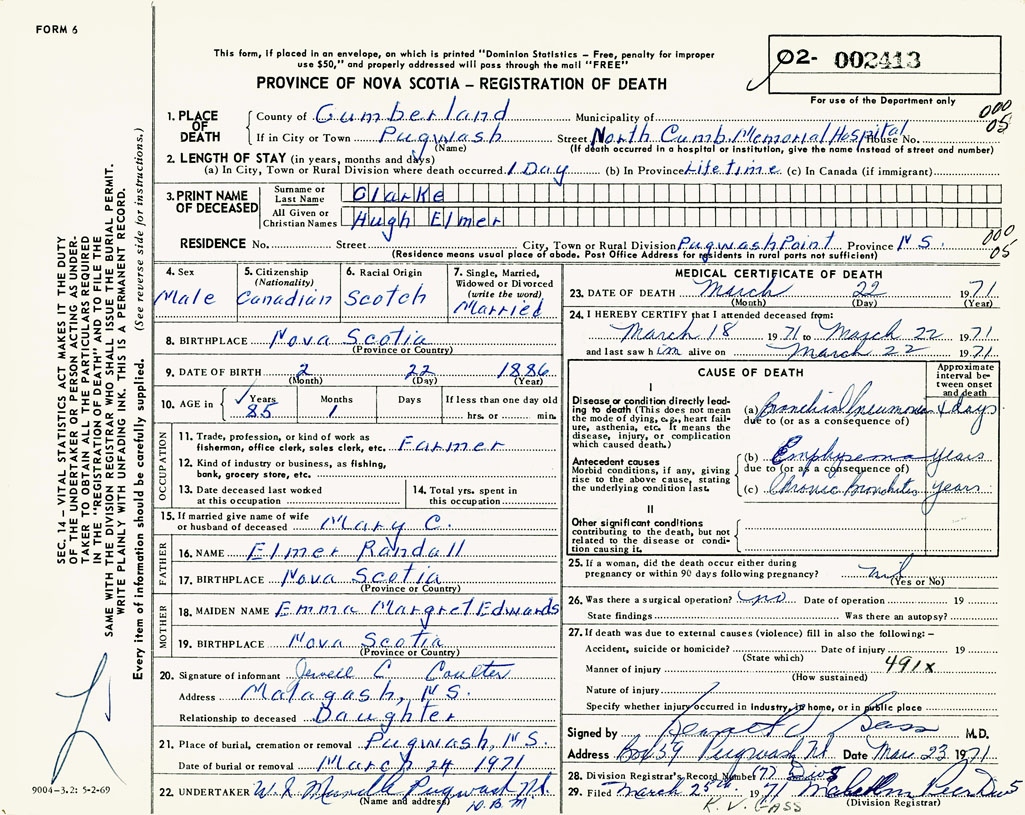 FORM 6
This form, if placed in an envelope, on which is printed "Dominion Statistics – Free, penalty for improper
use $50," and properly addressed will pass through the mail "FREE"
Ø2- 002413
For use of the Department only
PROVINCE OF NOVA SCOTIA – REGISTRATION OF DEATH
SEC. 14 – VITAL STATISTICS ACT MAKES IT THE DUTY
OF THE UNDERTAKER OR PERSON ACTING AS UNDER-
TAKER TO OBTAIN ALL THE PARTICULARS REQUIRED
IN THE "REGISTRATION OF DEATH" AND TO FILE THE
SAME WITH THE DIVISION REGISTRAR WHO SHALL ISSUE THE BURIAL PERMIT.
WRITE PLAINLY WITH UNFADING INK. THIS IS A PERMANENT RECORD.
Every item of information should be carefully supplied. (See reverse side for instructions.)
1. PLACE OF DEATH
County of Cumberland Municipality of
000
05
If in City or Town Pugwash Street North Cumb. Memorial Hospital House No.
(Name) (If death occurred in a hospital or institution, give the name instead of street and number)
2. LENGTH OF STAY (in years, months and days)
(a) In City, Town or Rural Division where death occurred 1 Day (b) In Province Lifetime (c) In Canada (if immigrant)
3. PRINT NAME OF DECEASED
Surname or Last Name Clarke
All Given or Christian Names Hugh Elmer
RESIDENCE No. Street City, Town or Rural Division Pugwash Point Province N S.
000
05
(Residence means usual place of abode. Post Office Address for residents in rural parts not sufficient)
4. Sex
Male
5. Citizenship (Nationality)
Canadian
6. Racial Origin
Scotch
7. Single, Married, Widowed or Divorced (write the word)
Married
8. BIRTHPLACE Nova Scotia
(Province or Country)
9. DATE OF BIRTH 2 22 1886
(Month) (Day) (Year)
10. AGE in Years 85 Months 1 Days If less than one day old hrs. or min.
OCCUPATION
11. Trade, profession, or kind of work as
fisherman, office clerk, sales clerk, etc. Farmer
12. Kind of industry or business, as fishing,
bank, grocery store, etc.
13. Date deceased last worked
at this occupation
14. Total yrs. spent in
this occupation
15. If married give name of wife
or husband of deceased Mary C.
FATHER
16. NAME Elmer Randall
17. BIRTHPLACE Nova Scotia
(Province or Country)
MOTHER
18. MAIDEN NAME Emma Margret Edwards
19. BIRTHPLACE Nova Scotia
(Province or Country)
20. Signature of informant Jewell C Coulter
Address Malagash, N S.
Relationship to deceased Daughter
21. Place of burial, cremation or removal Pugwash, N S
Date of burial or removal March 24 1971
22. UNDERTAKER Pugwash N.S.
(Name and address)
9004-3.2: 5-2-69
MEDICAL CERTIFICATE OF DEATH
23. DATE OF DEATH March 22 1971
(Month) (Day) (Year)
24. I HEREBY CERTIFY that I attended deceased from:
March 18 1971 to March 22 1971
and last saw him alive on March 22 1971
CAUSE OF DEATH
Approximate interval between onset and death
I
Disease or condition directly lead-
ing to death (This does not mean
the mode of dying, e.g., heart fail-
ure, asthenia, etc. It means the
disease, injury, or complication
which caused death.)
(a) Bronchial Pneumonia 4 days
due to (or as a consequence of)
Antecedent causes
Morbid conditions, if any, giving
rise to the above cause, stating
the underlying condition last.
(b) Emphysema years
due to (or as a consequence of)
(c) Chronic Bronchitis years
II
Other significant conditions
contributing to the death, but not
related to the disease or condi-
tion causing it.
25. If a woman, did the death occur either during
pregnancy or within 90 days following pregnancy?
(Yes or No)
26. Was there a surgical operation? no Date of operation 19
State findings Was there an autopsy?
27. If death was due to external causes (violence) fill in also the following: –
Accident, suicide or homicide? Date of injury 19
(State which)
491x
Manner of injury
(How sustained)
Nature of injury
Specify whether injury occurred in industry, in home, or in public place
Signed by Kenneth V Gass M.D.
Address Box 59 Pugwash N.S. Date Mar. 23 1971
28. Division Registrar's Record Number (7)
29. Filed March 25th 1971
(Division Registrar)
K. V. GASS